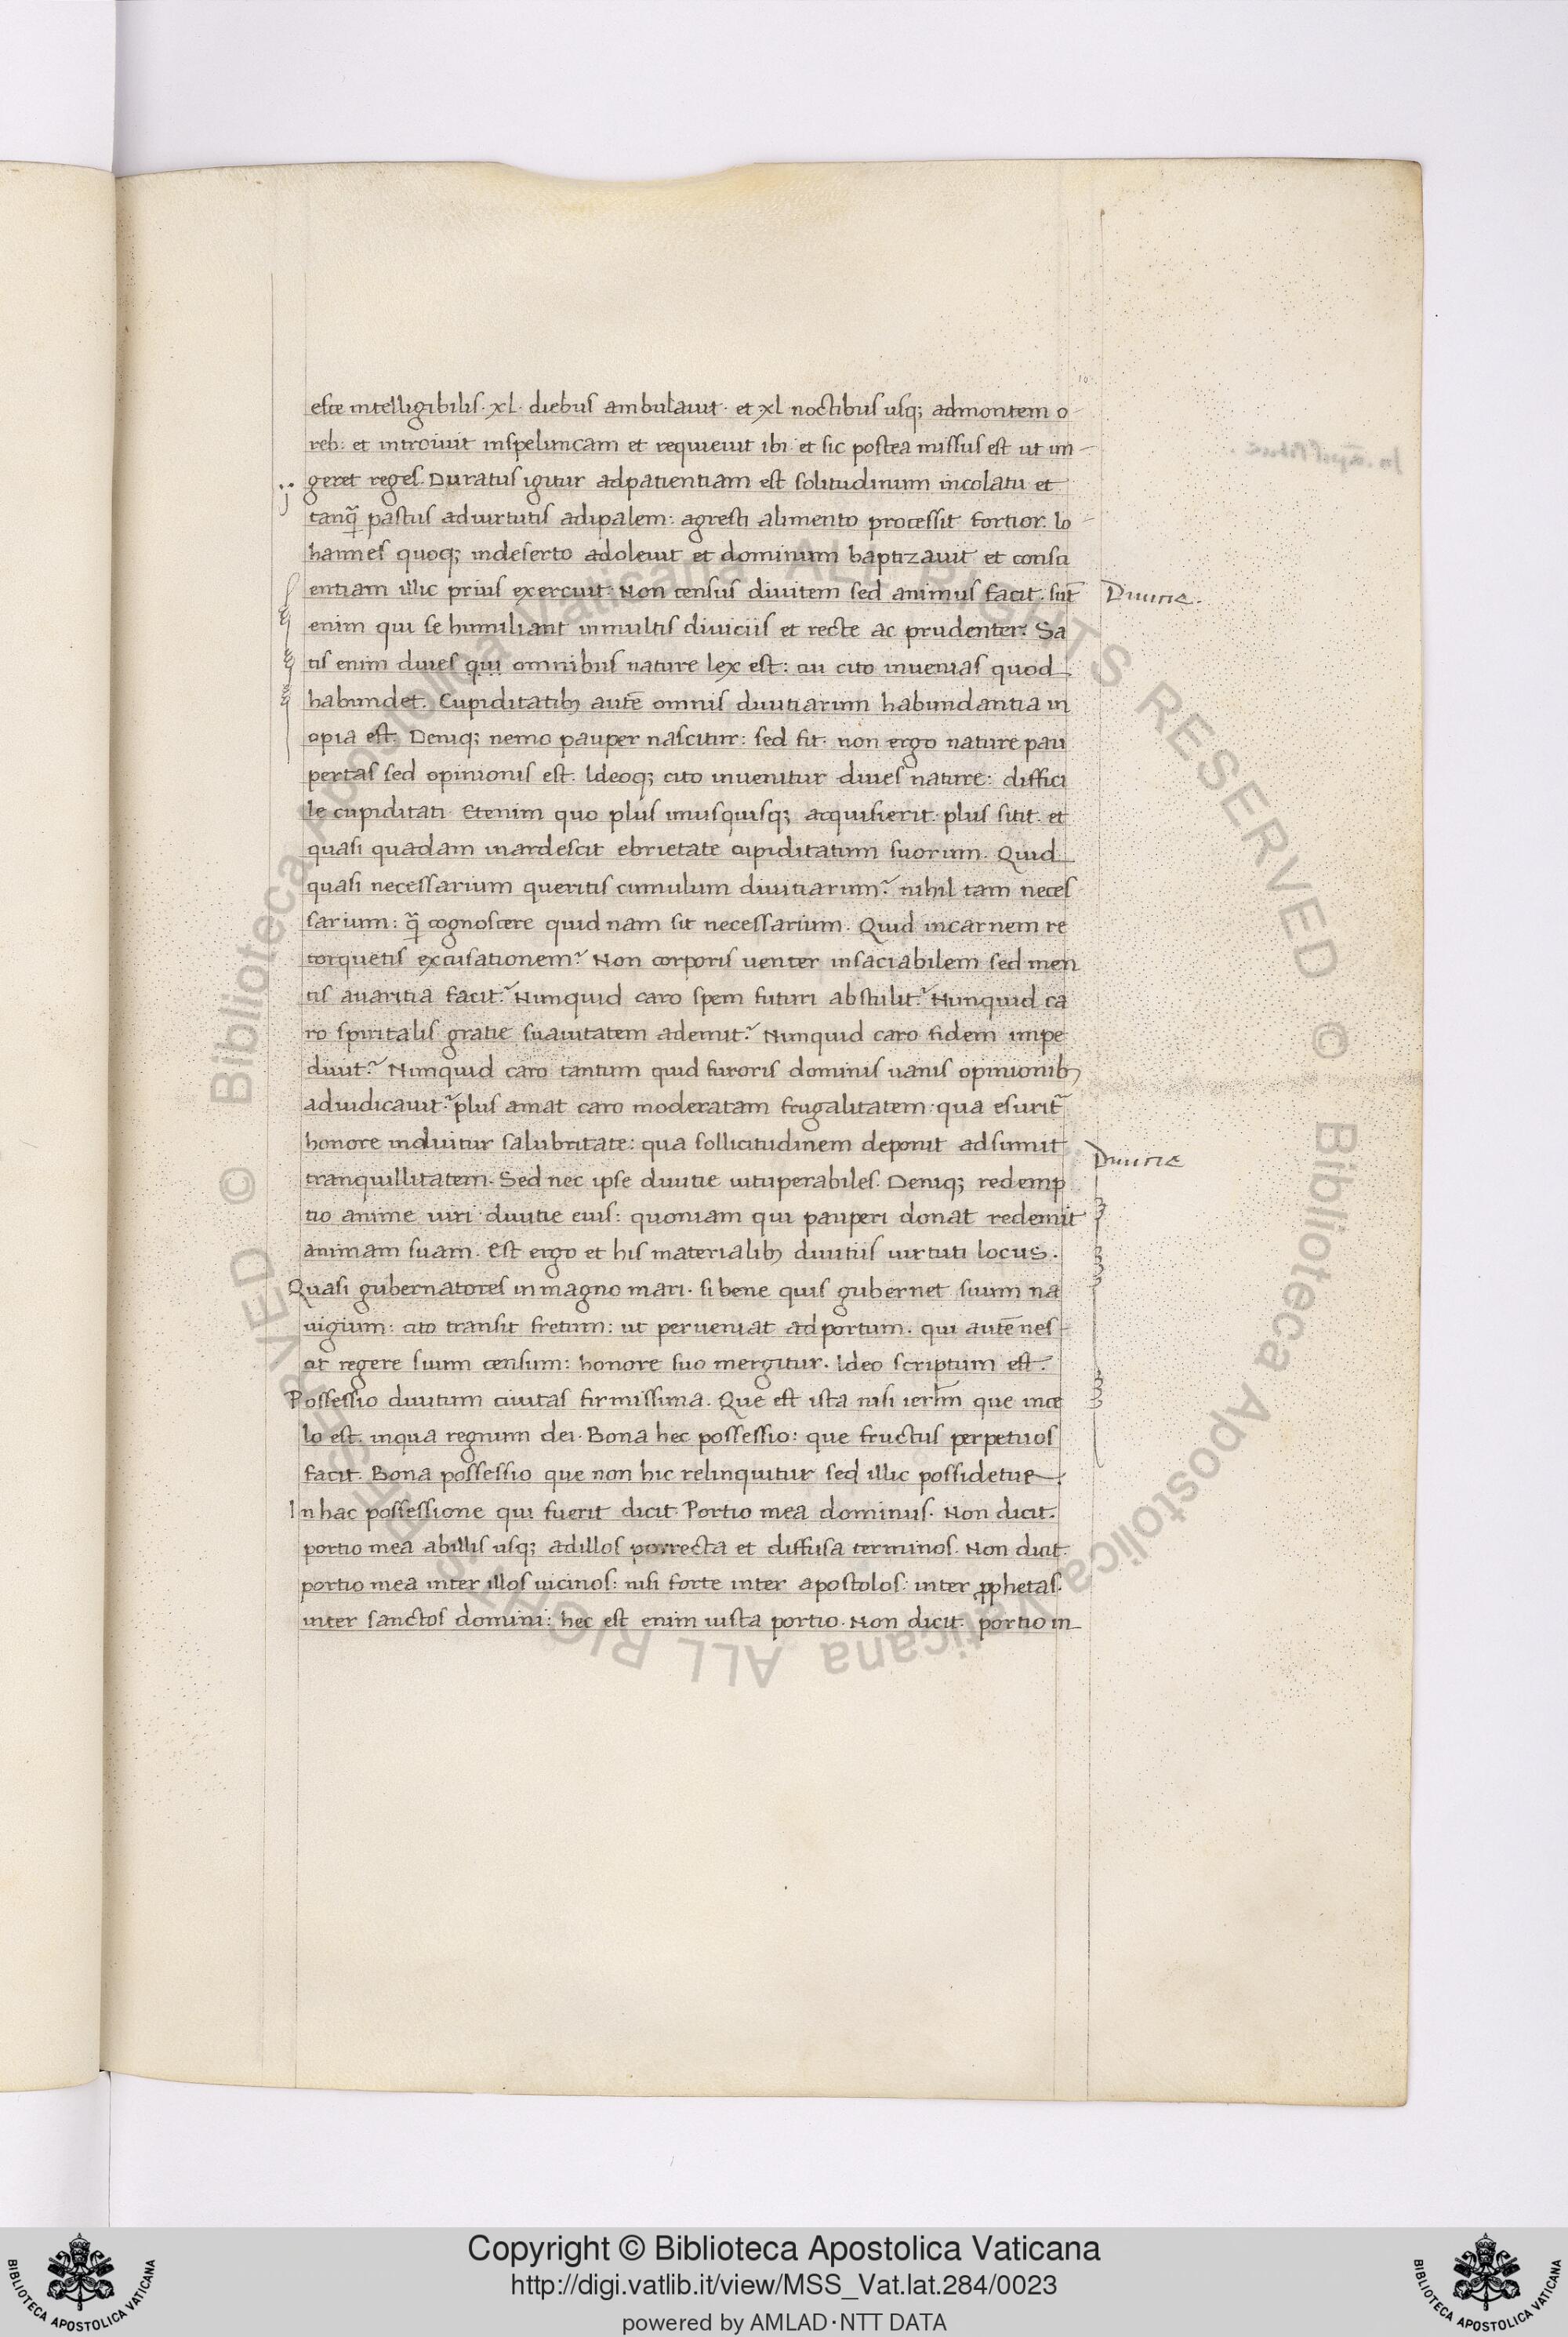 10
esce intelligibilis. xl. diebus ambulauit. et xl noctibus usq; admontem o-
reb: et introiuit inspeluncam et requieuit ibi: et sic postea missus est ut un-
geret reges. Duratus igitur adpatientiam est solitudinum incolatu et
tanq̃ pastus aduirtutis adipalem: agresti alimento processit fortior. Io-
hannes quoq; indeserto adoleuit et dominum baptizauit et consti
entiam illic prius exercuit. Non census diuitem sed animus facit. sũt
Diuitie.
enim qui se humiliant inmultis diuiciis et recte ac prudenter. Sa
tis enim diues qui omnibus nature lex est: cui cito inuenias quod
habundet. Cupiditatib; autẽ omnis diuitiarum habundantia in
opia est. Deniq; nemo pauper nascitur: sed fit. non ergo nature pau
pertas sed opinionis est. Ideoq; cito inuenitur diues nature: diffici
le cupiditati. Etenim quo plus unusquisq; acquisierit. plus sitit. et
quasi quadam inardescit ebrietate cupiditatum suorum. Quid
quasi necessarium queritis cumulum diuitiarum? nihil tam neces
sarium: q̃ cognoscere quid nam sit necessarium. Quid incarnem re
torquetis excusationem? Non corporis uenter insaciabilem sed men
tis auaritia facit? Nunquid caro spem futuri abstulit? Nunquid ca
ro spiritalis gratie suauitatem ademit? Nunquid caro fidem impe
diuit? Nunquid caro tantum quid furoris dominis uanis opinionib;
adiudicauit? plus amat caro moderatam frugalitatem: qua esurit̃
honore induitur salubritate: qua sollicitudinem deponit adsumit
tranquillitatem. Sed nec ipse diuitie uituperabiles. Deniq; redemp
Diuitie
tio anime uiri diuitie eius: quoniam qui pauperi donat redemit
animam suam. Est ergo et his materialib; diuitiis uirtuti locus.
Quasi gubernatores inmagno mari. si bene quis gubernet suum na
uigium: cito transit fretum: ut perueniat adportum. qui autẽ nes-
cit regere suum censum: honore suo mergitur. Ideo scriptum est.
Possessio diuitum ciuitas firmissima. Que est ista nisi ierlm̃ que ince
lo est. inqua regnum dei. Bona hec possessio: que fructus perpetuos
facit. Bona possessio que non hic relinquitur sed illic possidetur.
In hac possessione qui fuerit dicit Portio mea dominus. Non dicit.
portio mea abillis usq; adillos porrecta et diffusa terminos. Non dicit.
portio mea inter illos uicinos: nisi forte inter apostolos: inter ꝓphetas.
inter sanctos domini: hec est enim iusta portio. Non dicit. portio in
Copyright © Biblioteca Apostolica Vaticana
http://digi.vatlib.it/view/MSS_Vat.lat.284/0023
powered by AMLAD·NTT DATA